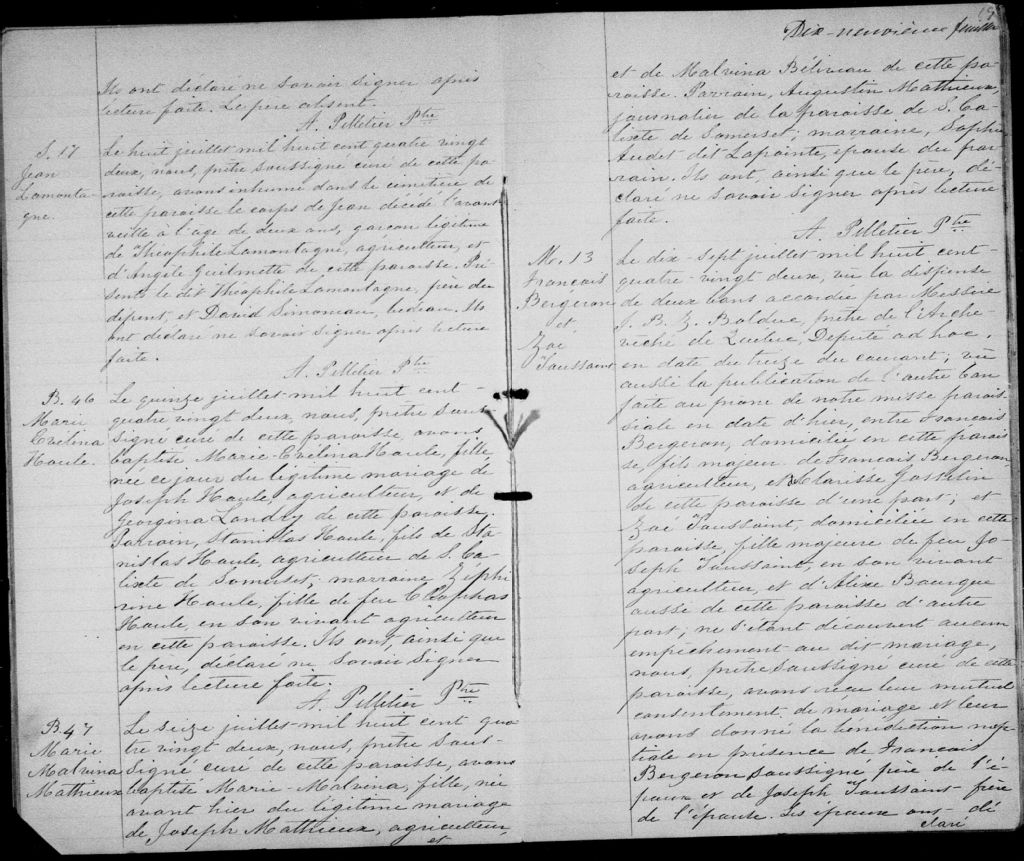 Ils ont déclaré ne savoir signer après
lecture faite. Le père absent.
A. Pelletier Ptre
S. 17
Jean
Lamonta-
gne.
Le huit juillet mil huit cent quatre vingt
deux, nous, prêtre soussigné curé de cette pa-
roisse, avons inhumé dans le cimetière de
cette paroisse le corps de Jean décédé l'avant
veille à l'age de deux ans, garçon légitime
de Théophile Lamontagne, agriculteur, et
d'Angèle Guilmette de cette paroisse. Pré-
sents le dit Théophile Lamontagne, père du
defunt, et David Simoneau, bedeau. Ils
ont déclaré ne savoir signer après lecture
faite.
A. Pelletier Ptre
B. 46
Marie
Evelina
Houle.
Le quinze juillet mil huit cent
quatre vingt deux, nous, prêtre sous-
signé curé de cette paroisse, avons
baptisé Marie-Evelina Houle, fille
née ce jour du légitime mariage de
Joseph Houle, agriculteur, et de
Georgina Landry de cette paroisse.
Parrain, Stanislas Houle, fils de Sta-
nislas Houle, agriculteur de S. Ca-
lixte de Somerset; marraine, Zéphi
rine Houle, fille de feu Cléophas
Houle, en son vivant agriculteur
en cette paroisse. Ils ont, ainsi que
le père, déclaré ne savoir signer
après lecture faite.
A. Pelletier Ptre
B. 47
Marie
Malvina
Mathieux
Le seize juillet mil huit cent qua
tre vingt deux, nous, prêtre sous-
signé curé de cette paroisse, avons
baptisé Marie-Malvina, fille, née
avant hier du légitime mariage
de Joseph Matthieux, agriculteur,
et
19
Dix-neuvième feuillet
et de Malvina Béliveau de cette pa-
roisse. Parrain, Augustin Matthieux,
journalier de la paroisse de S. Ca-
lixte de Somerset; marraine, Sophie
Audet dit Lapointe, épouse du par-
rain. Ils ont, ainsi que le père, dé-
claré ne savoir signer après lecture
faite.
A. Pelletier Ptre
M. 13
François
Bergeron
et
Zoé
Toussaint
Le dix-sept juillet mil huit cent
quatre-vingt deux, vu la dispense
de deux bans accordée par Messire
J. B. Z. Bolduc, prêtre de l'Arche-
vêché de Québec, Député ad hoc,
en date du treize du courant; vu
aussi la publication de l'autre ban
faite au prône de notre messe parois-
siale en date d'hier, entre François
Bergeron, domicilié en cette parois-
se, fils majeur de François Bergeron
agriculteur, et de Clarisse Gosselin
de cette paroisse d'une part; et
Zoé Toussaint, domiciliée en cette
paroisse, fille majeure de feu Jo-
seph Toussaint en son vivant
agriculteur, et d'Alixe Bourque
aussi de cette paroisse d'autre
part; ne s'étant découvert aucun
empêchement au dit mariage,
nous, prêtre soussigné curé de cette
paroisse, avons reçu leur mutuel
consentement de mariage et leur
avons donné la bénédiction nup-
tiale en présence de François
Bergeron soussigné père de l'é-
poux et de Joseph Toussaint frère
de l'épouse. Les époux ont dé
claré